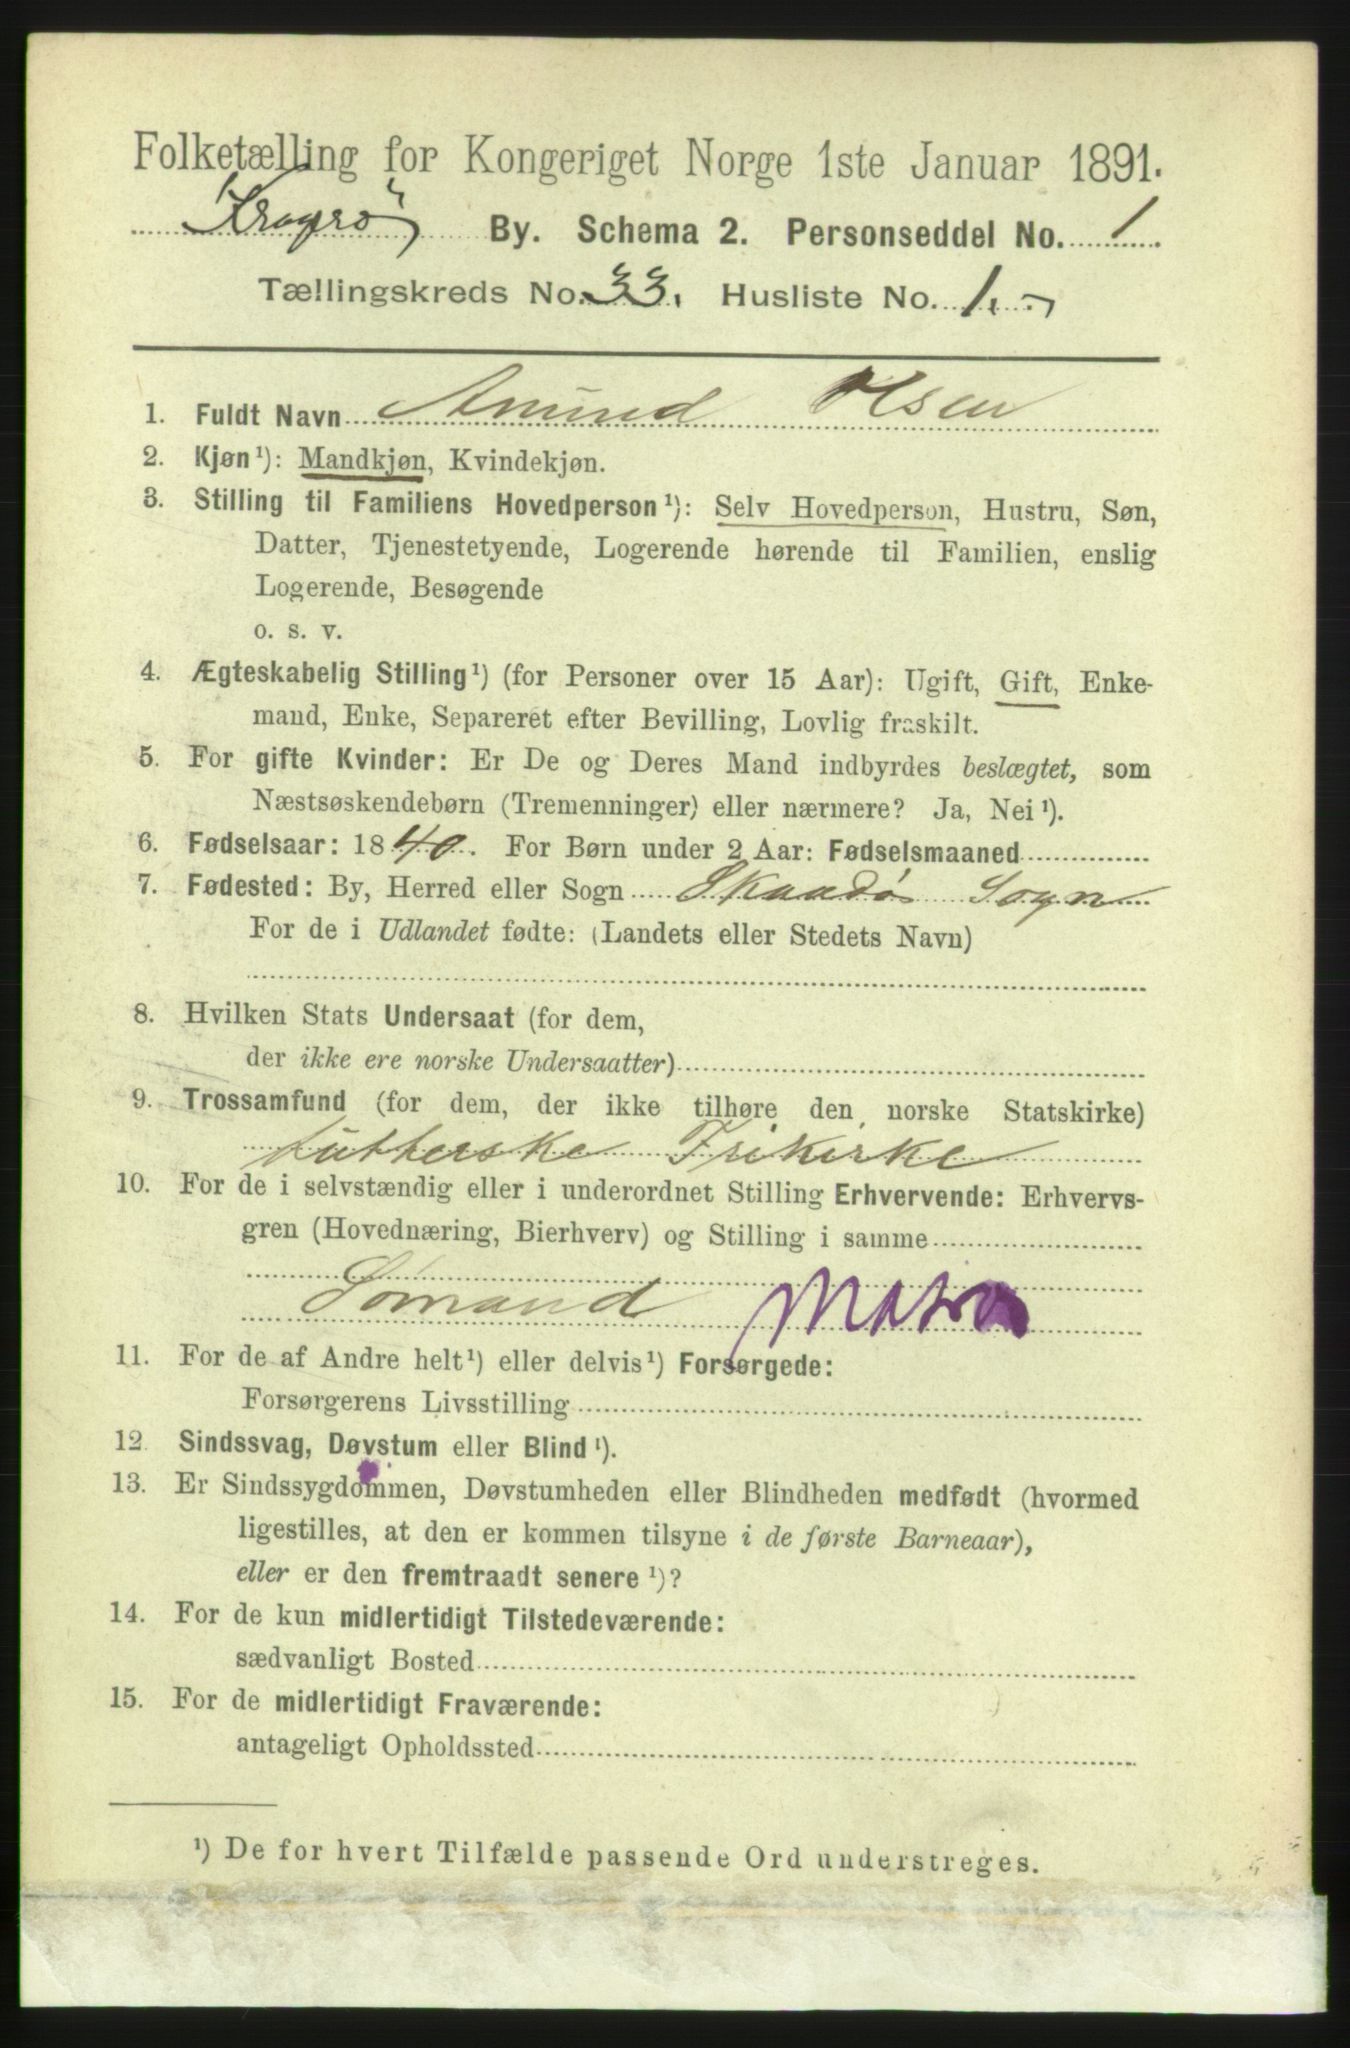 Folketælling for Kongeriget Norge 1ste Januar 1891.
Kragerö By. Schema 2. Personseddel No. 1
Tællingskreds No. 33. Husliste No. 1.
1. Fuldt Navn Amund Olsen
2. Kjøn¹): Mandkjøn, Kvindekjøn.
3. Stilling til Familiens Hovedperson¹): Selv Hovedperson, Hustru, Søn,
Datter, Tjenestetyende, Logerende hørende til Familien, enslig
Logerende, Besøgende
o. s. v.
4. Ægteskabelig Stilling¹) (for Personer over 15 Aar): Ugift, Gift, Enke-
mand, Enke, Separeret efter Bevilling, Lovlig fraskilt.
5. For gifte Kvinder: Er De og Deres Mand indbyrdes beslægtet, som
Næstsøskendebørn (Tremenninger) eller nærmere? Ja, Nei¹).
6. Fødselsaar: 1840. For Børn under 2 Aar: Fødselsmaaned
7. Fødested: By, Herred eller Sogn Skaadö Sogn
For de i Udlandet fødte: (Landets eller Stedets Navn)
8. Hvilken Stats Undersaat (for dem,
der ikke ere norske Undersaatter)
9. Trossamfund (for dem, der ikke tilhøre den norske Statskirke)
Lutherske Frikirke
10. For de i selvstændig eller i underordnet Stilling Erhvervende: Erhvervs-
gren (Hovednæring, Bierhverv) og Stilling i samme
Sömand Matros
11. For de af Andre helt¹) eller delvis¹) Forsørgede:
Forsørgerens Livsstilling
12 Sindssvag, Døvstum eller Blind¹).
13. Er Sindssygdommen, Døvstumheden eller Blindheden medfødt (hvormed
ligestilles, at den er kommen tilsyne i de første Barneaar),
eller er den fremtraadt senere¹)?
14. For de kun midlertidigt Tilstedeværende:
sædvanligt Bosted
15. For de midlertidigt Fraværende:
antageligt Opholdssted
¹) De for hvert Tilfælde passende Ord understreges.